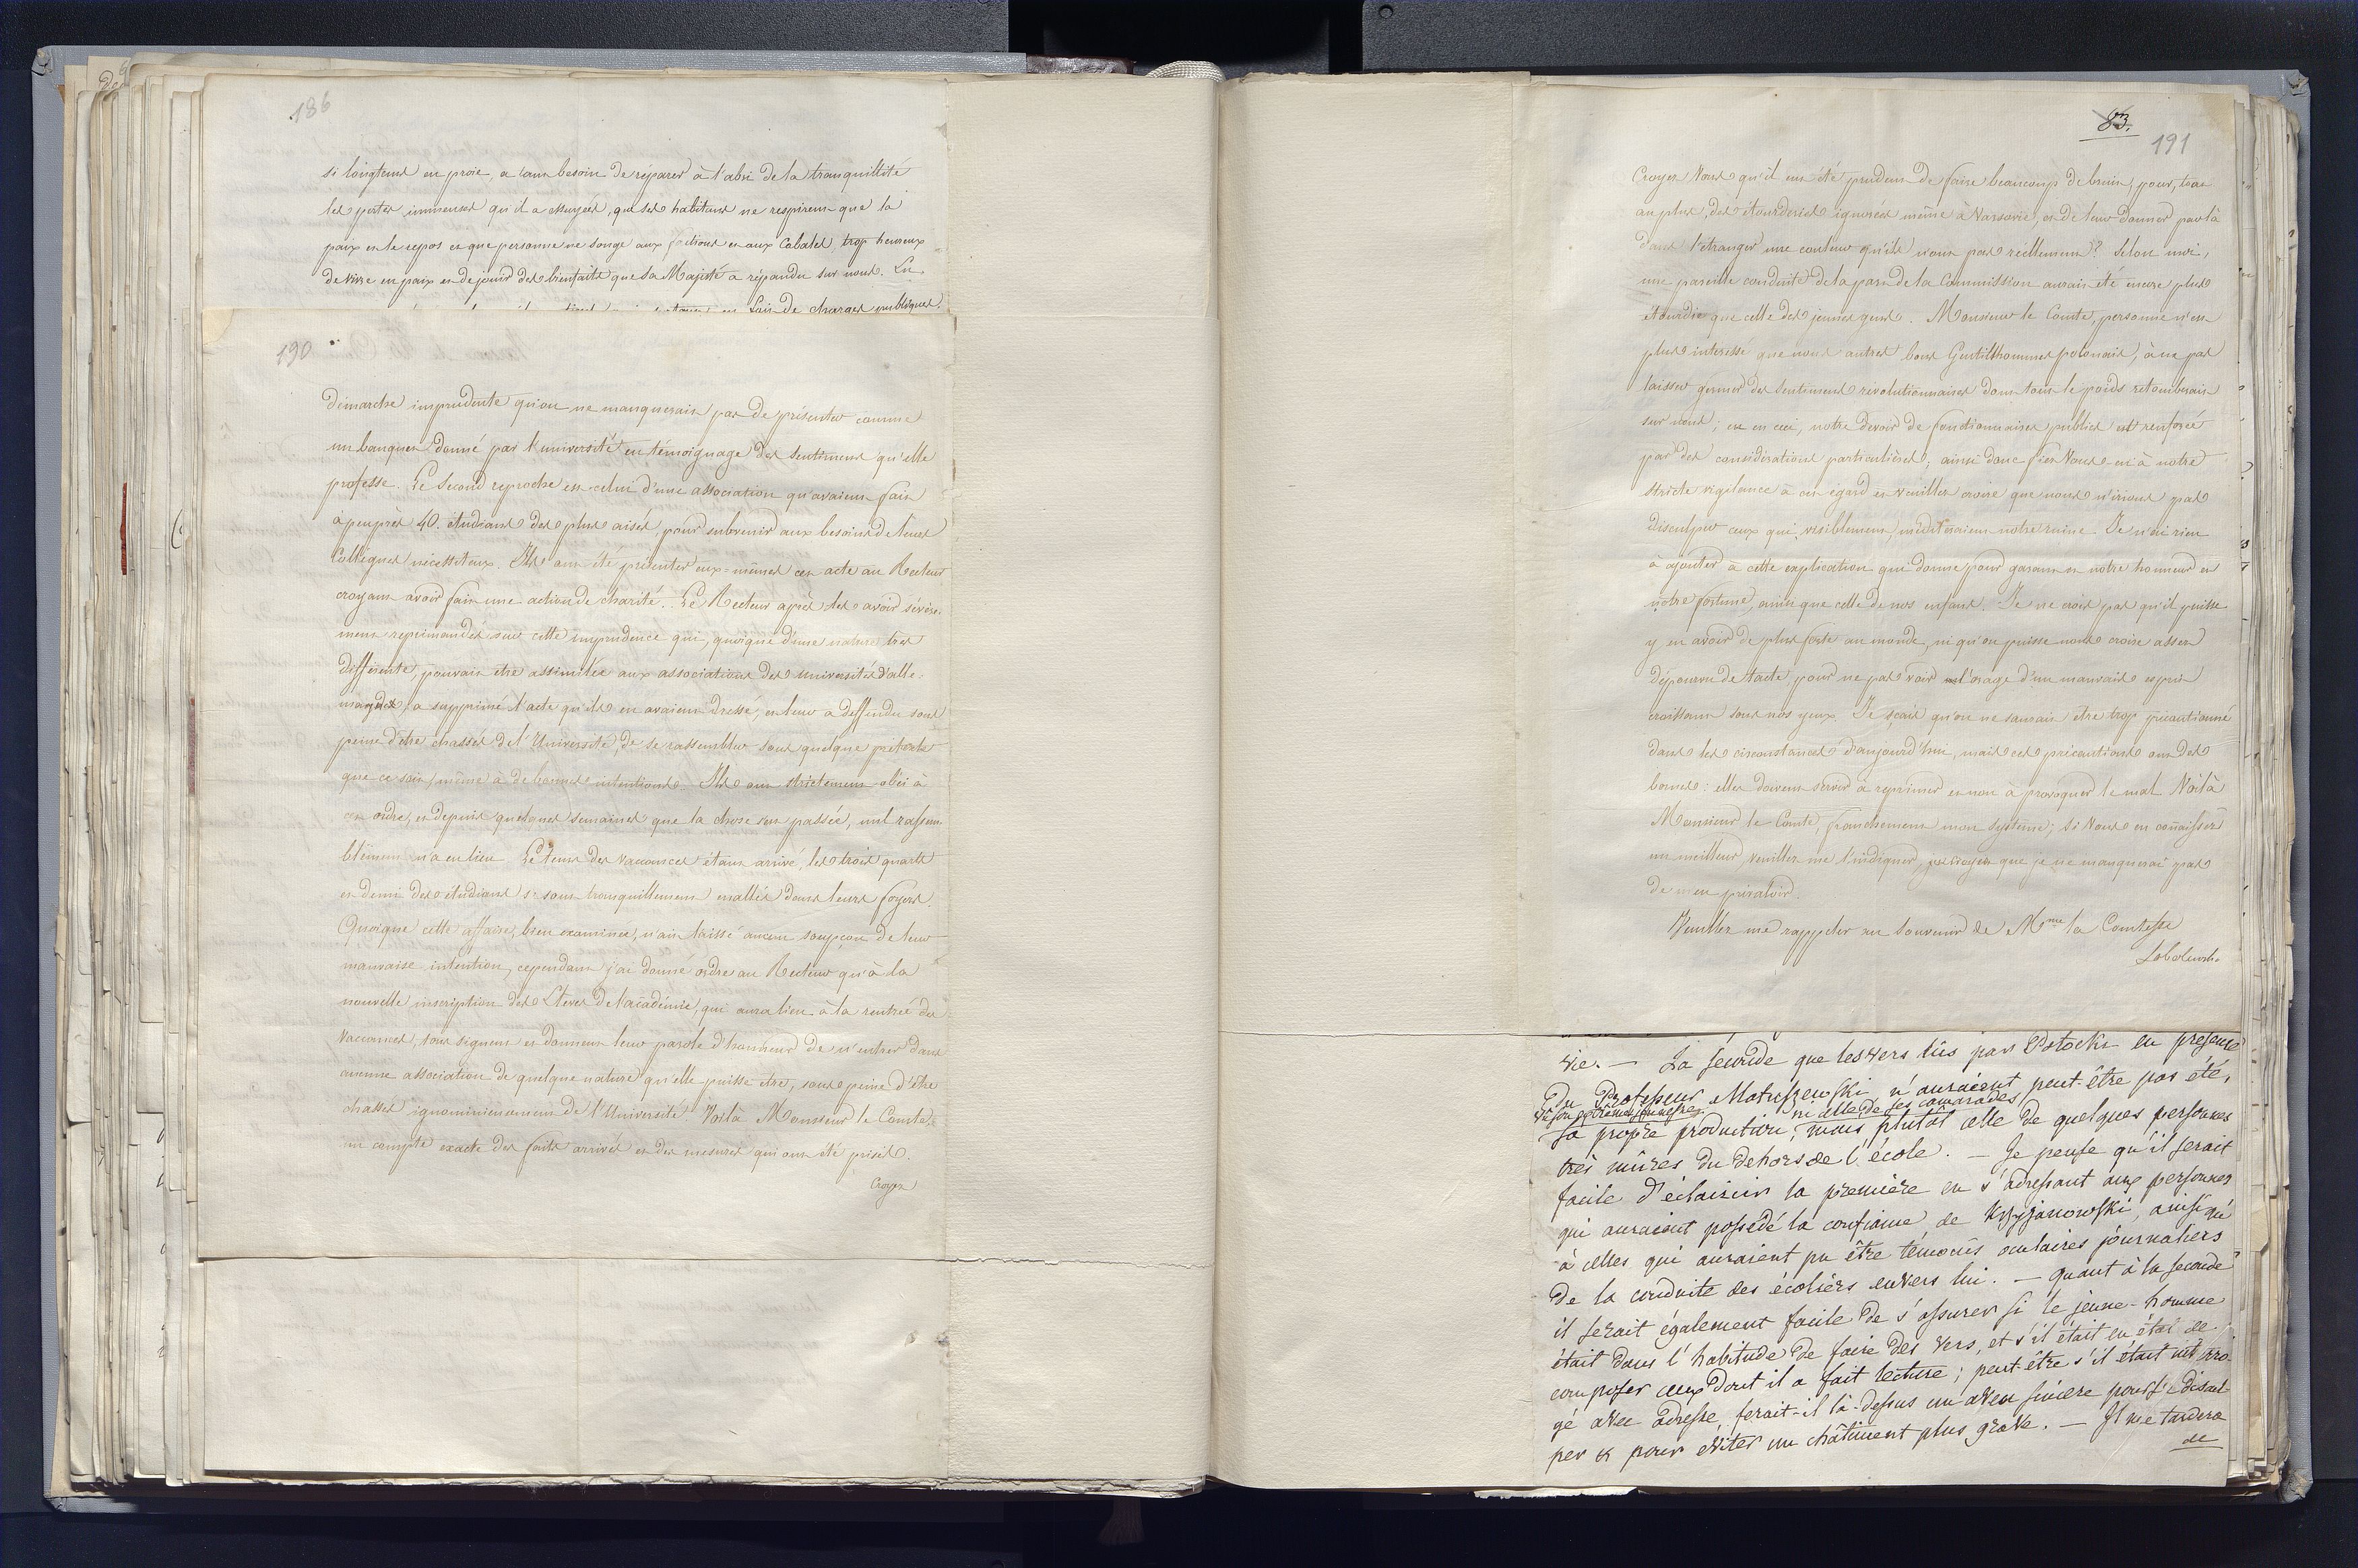 186
si longtems en proie, a tant besoin de réparer à l'abri de la tranquillité
les pertes immenses qu'il a essuyées, que ses habitans ne respirent que la
paix et le repos et que personne ne songe aux factions et aux Cabales, trop heureux
de vivre en paix et de jouir des bienfaits que Sa Majesté a répandu sur nous. Un
en Lois de charges publiques.
190
démarche imprudente qu'on ne manquerait pas de présenter comme
un banquet donné par l'université en témoignage des sentimens qu'elle
professe. Le second reproche est celui d'une association qu'avaient fait
à peu près 40. étudians des plus aisés, pour subvenir aux besoins de leurs
Collègues nécessiteux. Ils ont été présenter eux-mêmes cet acte au Recteur
croyant avoir fait une action de charité. Le Recteur après les avoir sévère-
ment reprimandés sur cette imprudence qui, quoique d'une nature très
differente, pouvait être assimilée aux associations des universités d'alle-
magnes, a supprimé l'acte qu'ils en avaient dressé, et leur a deffendu sous
peine d'être chassés de l'Université, de se rassembler sous quelque prétexte
que ce soit, même à de bonnes intentions. Ils ont strictement obéi à
cet ordre, et depuis quelques semaines que la chose s'est passée, nul rassem-
blement n'a eu lieu. Le tems des vacances étant arrivé, les trois quarts
et demi des étudians se sont tranquillement en allés dans leurs foyers.
Quoique cette affaire, bien examinée, n'ait laissé aucun soupçon de leur
mauvaise intention, cependant j'ai donné ordre au Recteur qu'à la
nouvelle inscription des Elèves de l'académie, qui aura lieu à la rentrée des
Vacances, tous signent et donnent leur parole d'honneur de n'entrer dans
aucune association de quelque nature qu'elle puisse être, sous peine d'être
chassés ignominieusement de l'Université. Voilà Monsieur le Comte,
un compte exacte des faits arrivés et des mesures qui ont été prises.
Croyez
83.
191
Croyez Vous qu'il eut été prudent de faire beaucoup de bruit, pour, tout
au plus, des étourderies ignorées même à Varsovie, et de leur donner par là
dans l'étranger une couleur qu'ils n'ont pas réellement? Selon moi,
une pareille conduite de la part de la Commission aurait été encore plus
étourdie que celle des jeunes gens. Monsieur le Comte, personne n'est
plus intéressé que nous autres bons Gentilshommes polonais, à ne pas
laisser germer des sentimens révolutionnaires dont tout le poids retomberait
sur nous; et en ceci, notre devoir de fonctionnaires publics est renforcé
par des considérations particulières; ainsi donc fiez Vous-en à notre
stricte vigilance à cet égard et veuillez croire que nous n'irions pas
disculper ceux qui, visiblement, méditeraient notre ruine. Je n'ai rien
à ajouter à cette explication qui donne pour garant et notre honneur et
notre fortune, ainsi que celle de nos enfans. Je ne crois pas qu'il puisse
y en avoir de plus forte au monde, ni qu'on puisse nous croire assez
dépourvu de tacte, pour ne pas voir l'orage d'un mauvais esprit
croissant sous nos yeux. Je sçais qu'on ne saurait être trop précautionné
dans les circonstances d'aujourd'hui, mais ces précautions ont des
bornes: elles doivent servir à reprimer et non à provoquer le mal. Voilà
Monsieur le Comte, franchement mon système; si Vous en connaissez
un meilleur, veuillez me l'indiquer, et croyez que je ne manquerai pas
de m'en prévaloir.
Veuillez me rappeler au souvenir de Mme la Comtesse
Sobolewski
vie. — La seconde que les vers lûs par Potocki en présence
du Professeur Matuszewski n'auraient peut-être pas été,
ni celle de ses camarades
sa propre production, mais plutôt celle de quelques personnes
très mûres du dehors de l'école. — Je pense qu'il serait
facile d'éclaircir la première en s'adressant aux personnes
qui auraient possédé la confiance de Krzyjanowski, ainsi qu'
à celles qui auraient pu être témoins oculaires journaliers
de la conduite des écoliers envers lui. — Quant à la seconde
il serait également facile de s'assurer si le jeune-homme
était dans l'habitude de faire des vers, et s'il était en état de
composer ceux dont il a fait lecture; peut-être s'il était interro-
gé avec adresse, ferait-il là-dessus un aveu sincère pour se discul-
per & pour éviter un châtiment plus grave. — Il me tardera
de